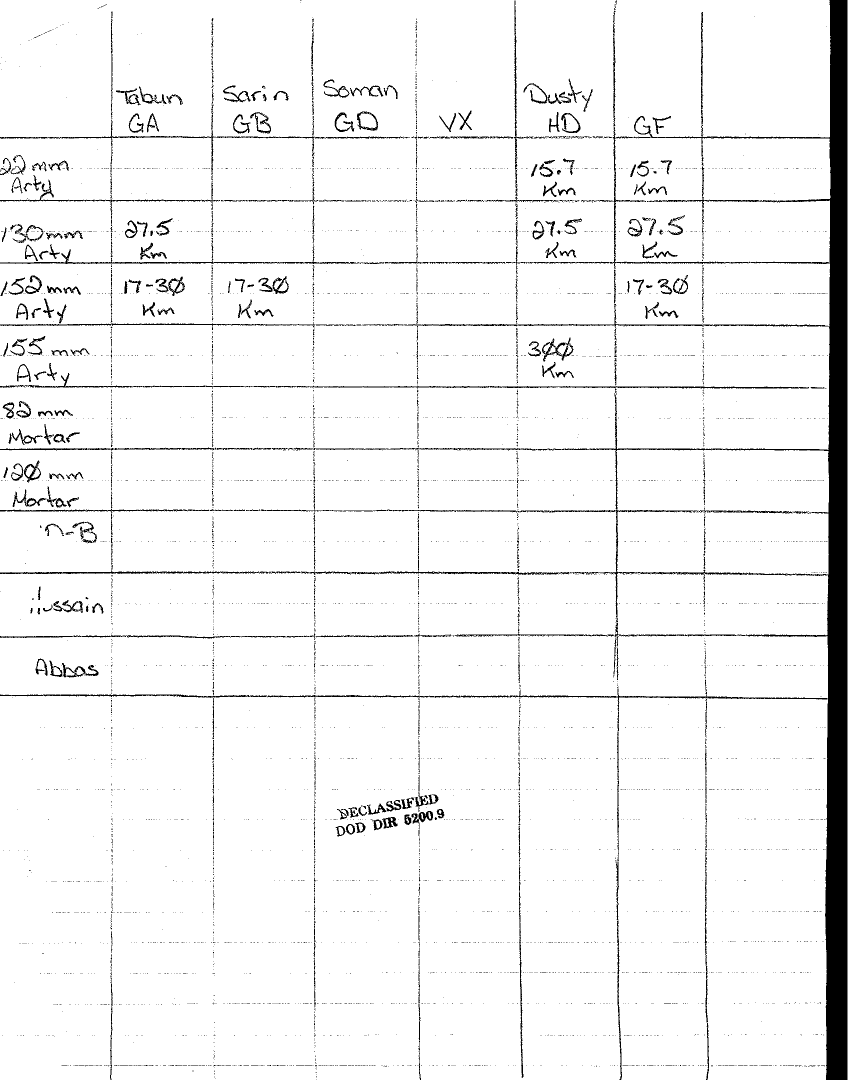 Tabun Sarin Soman Dusty
GA GB GD VX HD GF
22 mm 15.7 15.7
Arty Km Km
130 mm 27.5 27.5 27.5
Arty Km Km Km
152 mm 17-30 17-30 17-30
Arty Km Km Km
155 mm 300
Arty Km
82 mm
Mortar
120 mm
Mortar
n-B
ussain
Abbas
DECLASSIFIED
DOD DIR 5200.9